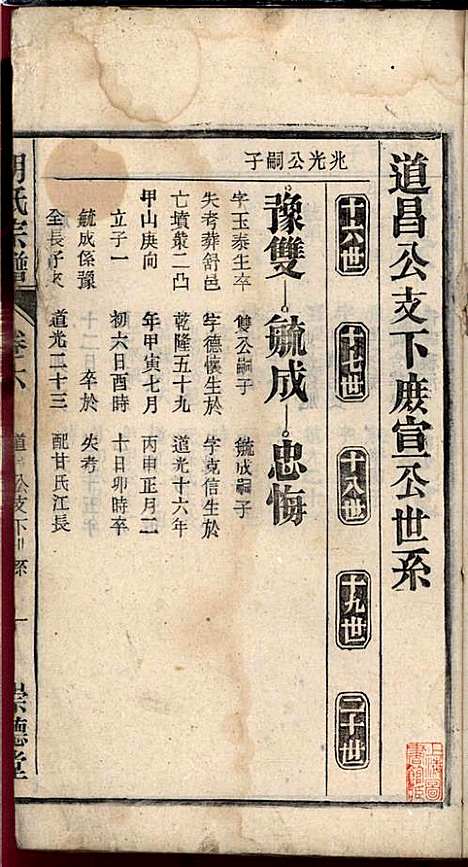 道昌公支下宣公世系
十六世
十七世
十八世
十九世
二十世
兆光公嗣子
豫雙 毓成 忠悔
字玉泰生卒 雙公嗣子 毓成嗣子
失考葬舒邑 字德懷生於 字克信生於
亡墳叢二凸 乾隆五十九 道光十六年
甲山庚向 年甲寅七月 丙申正月二
立子一 初六日酉時 十日卯時卒
毓成係豫 十二日卒於 失考
全長子次 道光二十三 配甘氏江長
氏宗譜 卷六 道 公支下 系 一 崇德堂
上海圖書館藏